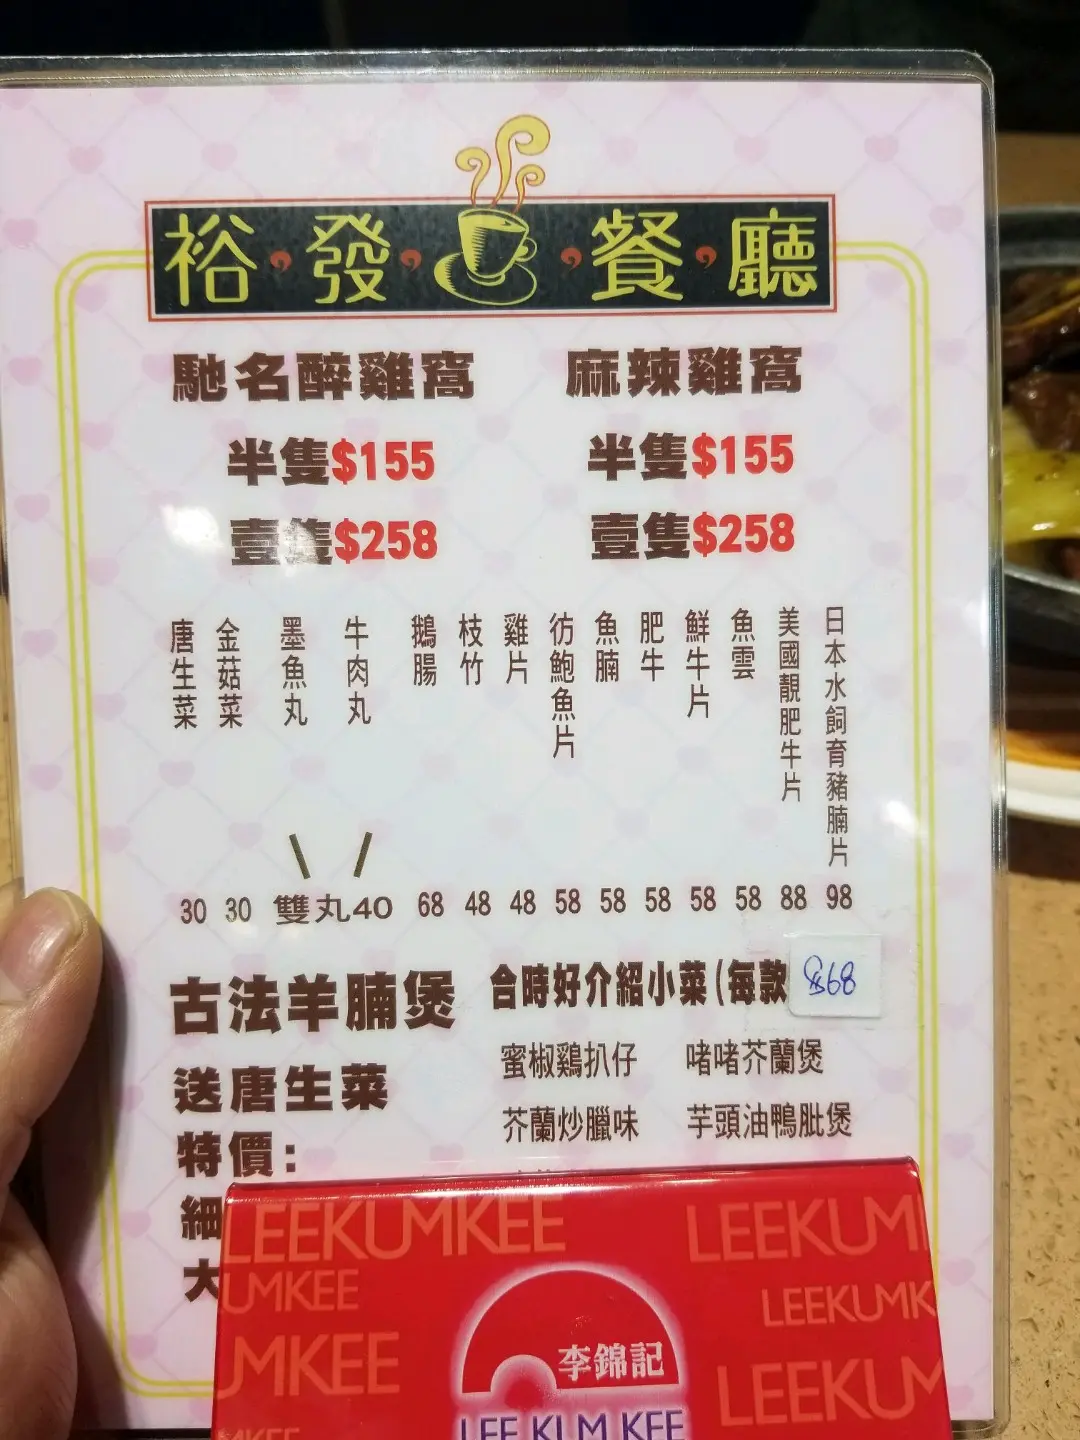 裕發餐廳
馳名醉雞窩
半隻$155
壹隻$258
麻辣雞窩
半隻$155
壹隻$258
唐生菜 30
金菇菜 30
墨魚丸 牛肉丸 雙丸40
鵝腸 68
枝竹 48
雞片 48
彷鮑魚片 58
魚腩 58
肥牛 58
鮮牛片 58
魚雲 58
美國靚肥牛片 88
日本水飼育豬腩片 98
古法羊腩煲
送唐生菜
特價:
細
大
合時好介紹小菜(每款
$68
蜜椒鷄扒仔 啫啫芥蘭煲
芥蘭炒臘味 芋頭油鴨肶煲
LEEKUMKEE LEEKUM
UMKEE LEEKUMK
MKEE LEEKUM
李錦記
LEE KUM KEE
MKEE